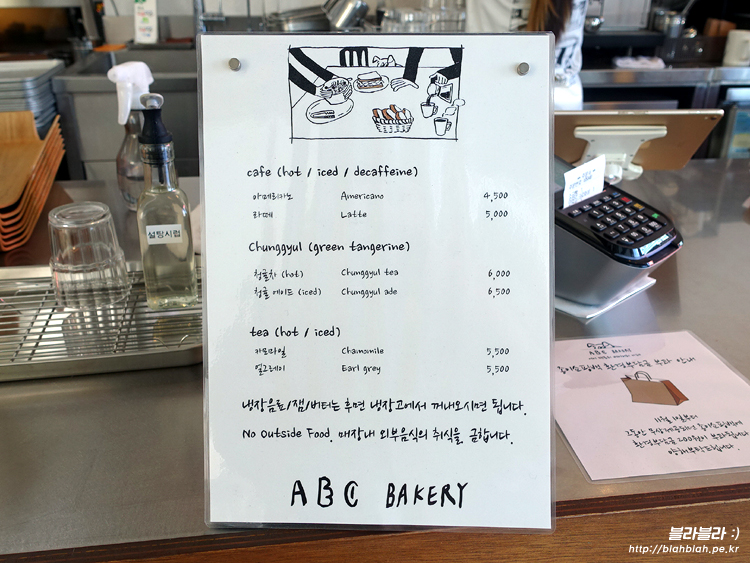 cafe (hot / iced / decaffeine)
아메리카노 Americano 4,500
라떼 Latte 5,000
Chunggyul (green tangerine)
청귤차 (hot) Chunggyul tea 6,000
청귤 에이드 (iced) Chunggyul ade 6,500
tea (hot / iced)
카모마일 Chamomile 5,500
얼그레이 Earl grey 5,500
냉장음료/잼/버터는 후면 냉장고에서 꺼내오시면 됩니다.
No Outside Food. 매장내 외부음식의 취식을 금합니다.
ABC BAKERY
설탕시럽
ABC BAKERY
종이쇼핑백 환경부담금 부과 안내
11월 1일부터
환경부담금 200원이 부과됩니다
양해부탁드립니다.
블라블라 :)
http://blahblah.pe.kr